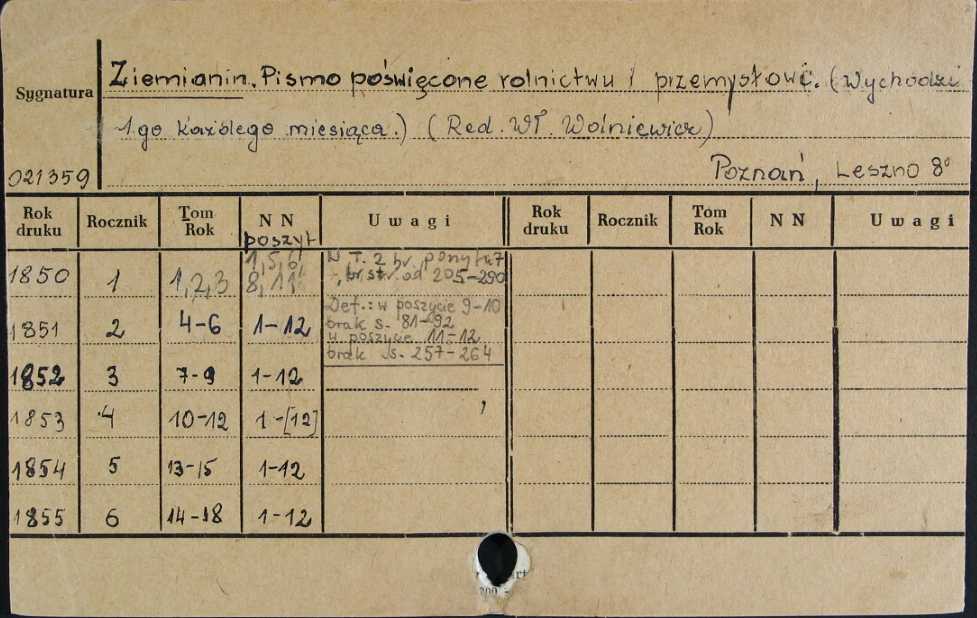 Ziemianin. Pismo poświęcone rolnictwu i przemysłowi. (Wychodzi
Sygnatura
1go każdego miesiąca.) (Red. Wł. Wolniewicz)
021359
Poznań, Leszno 8°
Rok druku Rocznik Tom Rok NN poszyt Uwagi Rok druku Rocznik Tom Rok NN Uwagi
1850 1 1,2,3 1,5,6, 8,11, W T. 2 br. 7
br. str. od 205-290
1851 2 4-6 1-12 Def.: w poszycie 9-10
brak s. 81-92
w poszycie 11-12
brak s. 257-264
1852 3 7-9 1-12
1853 4 10-12 1-[12]
1854 5 13-15 1-12
1855 6 14-18 1-12